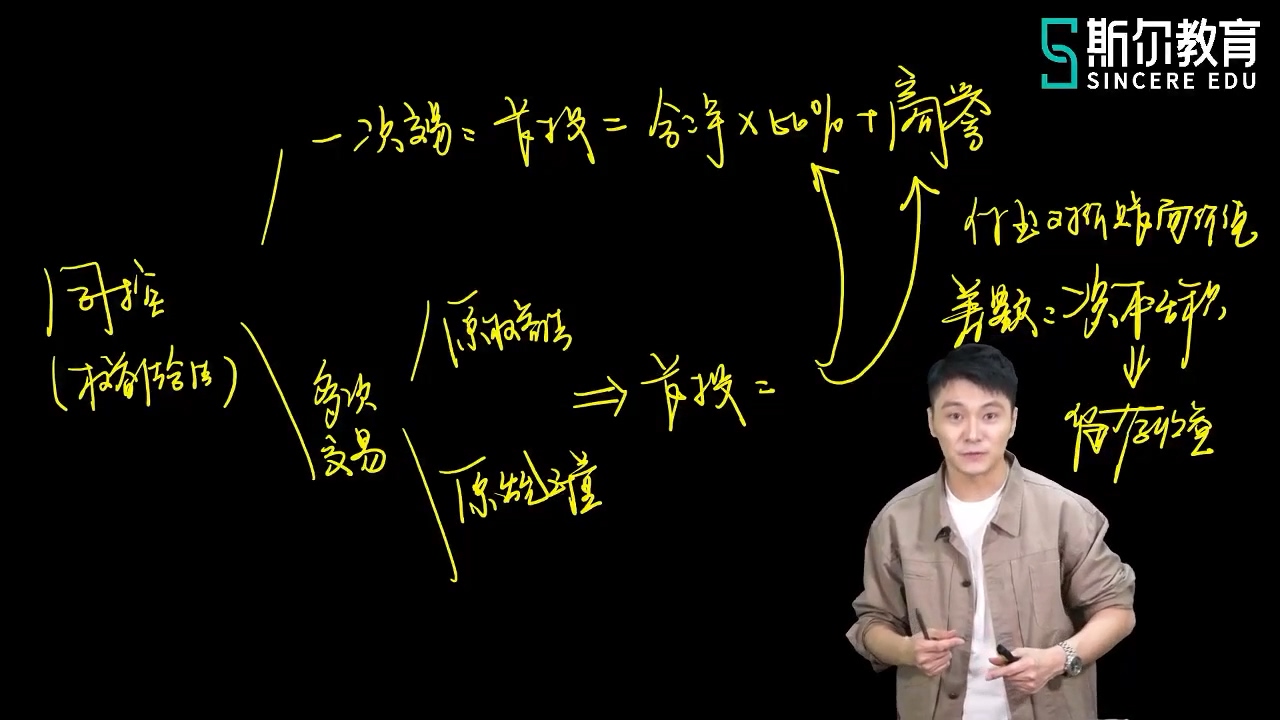 斯尔教育
SINCERE EDU
一次交易: 长投 = 合净 × 60% + 商誉
付出对价账面价值
差数: 资本公积
留存收益
同控
(权益结合法)
多次
交易
原权益法
⇒ 长投 =
原